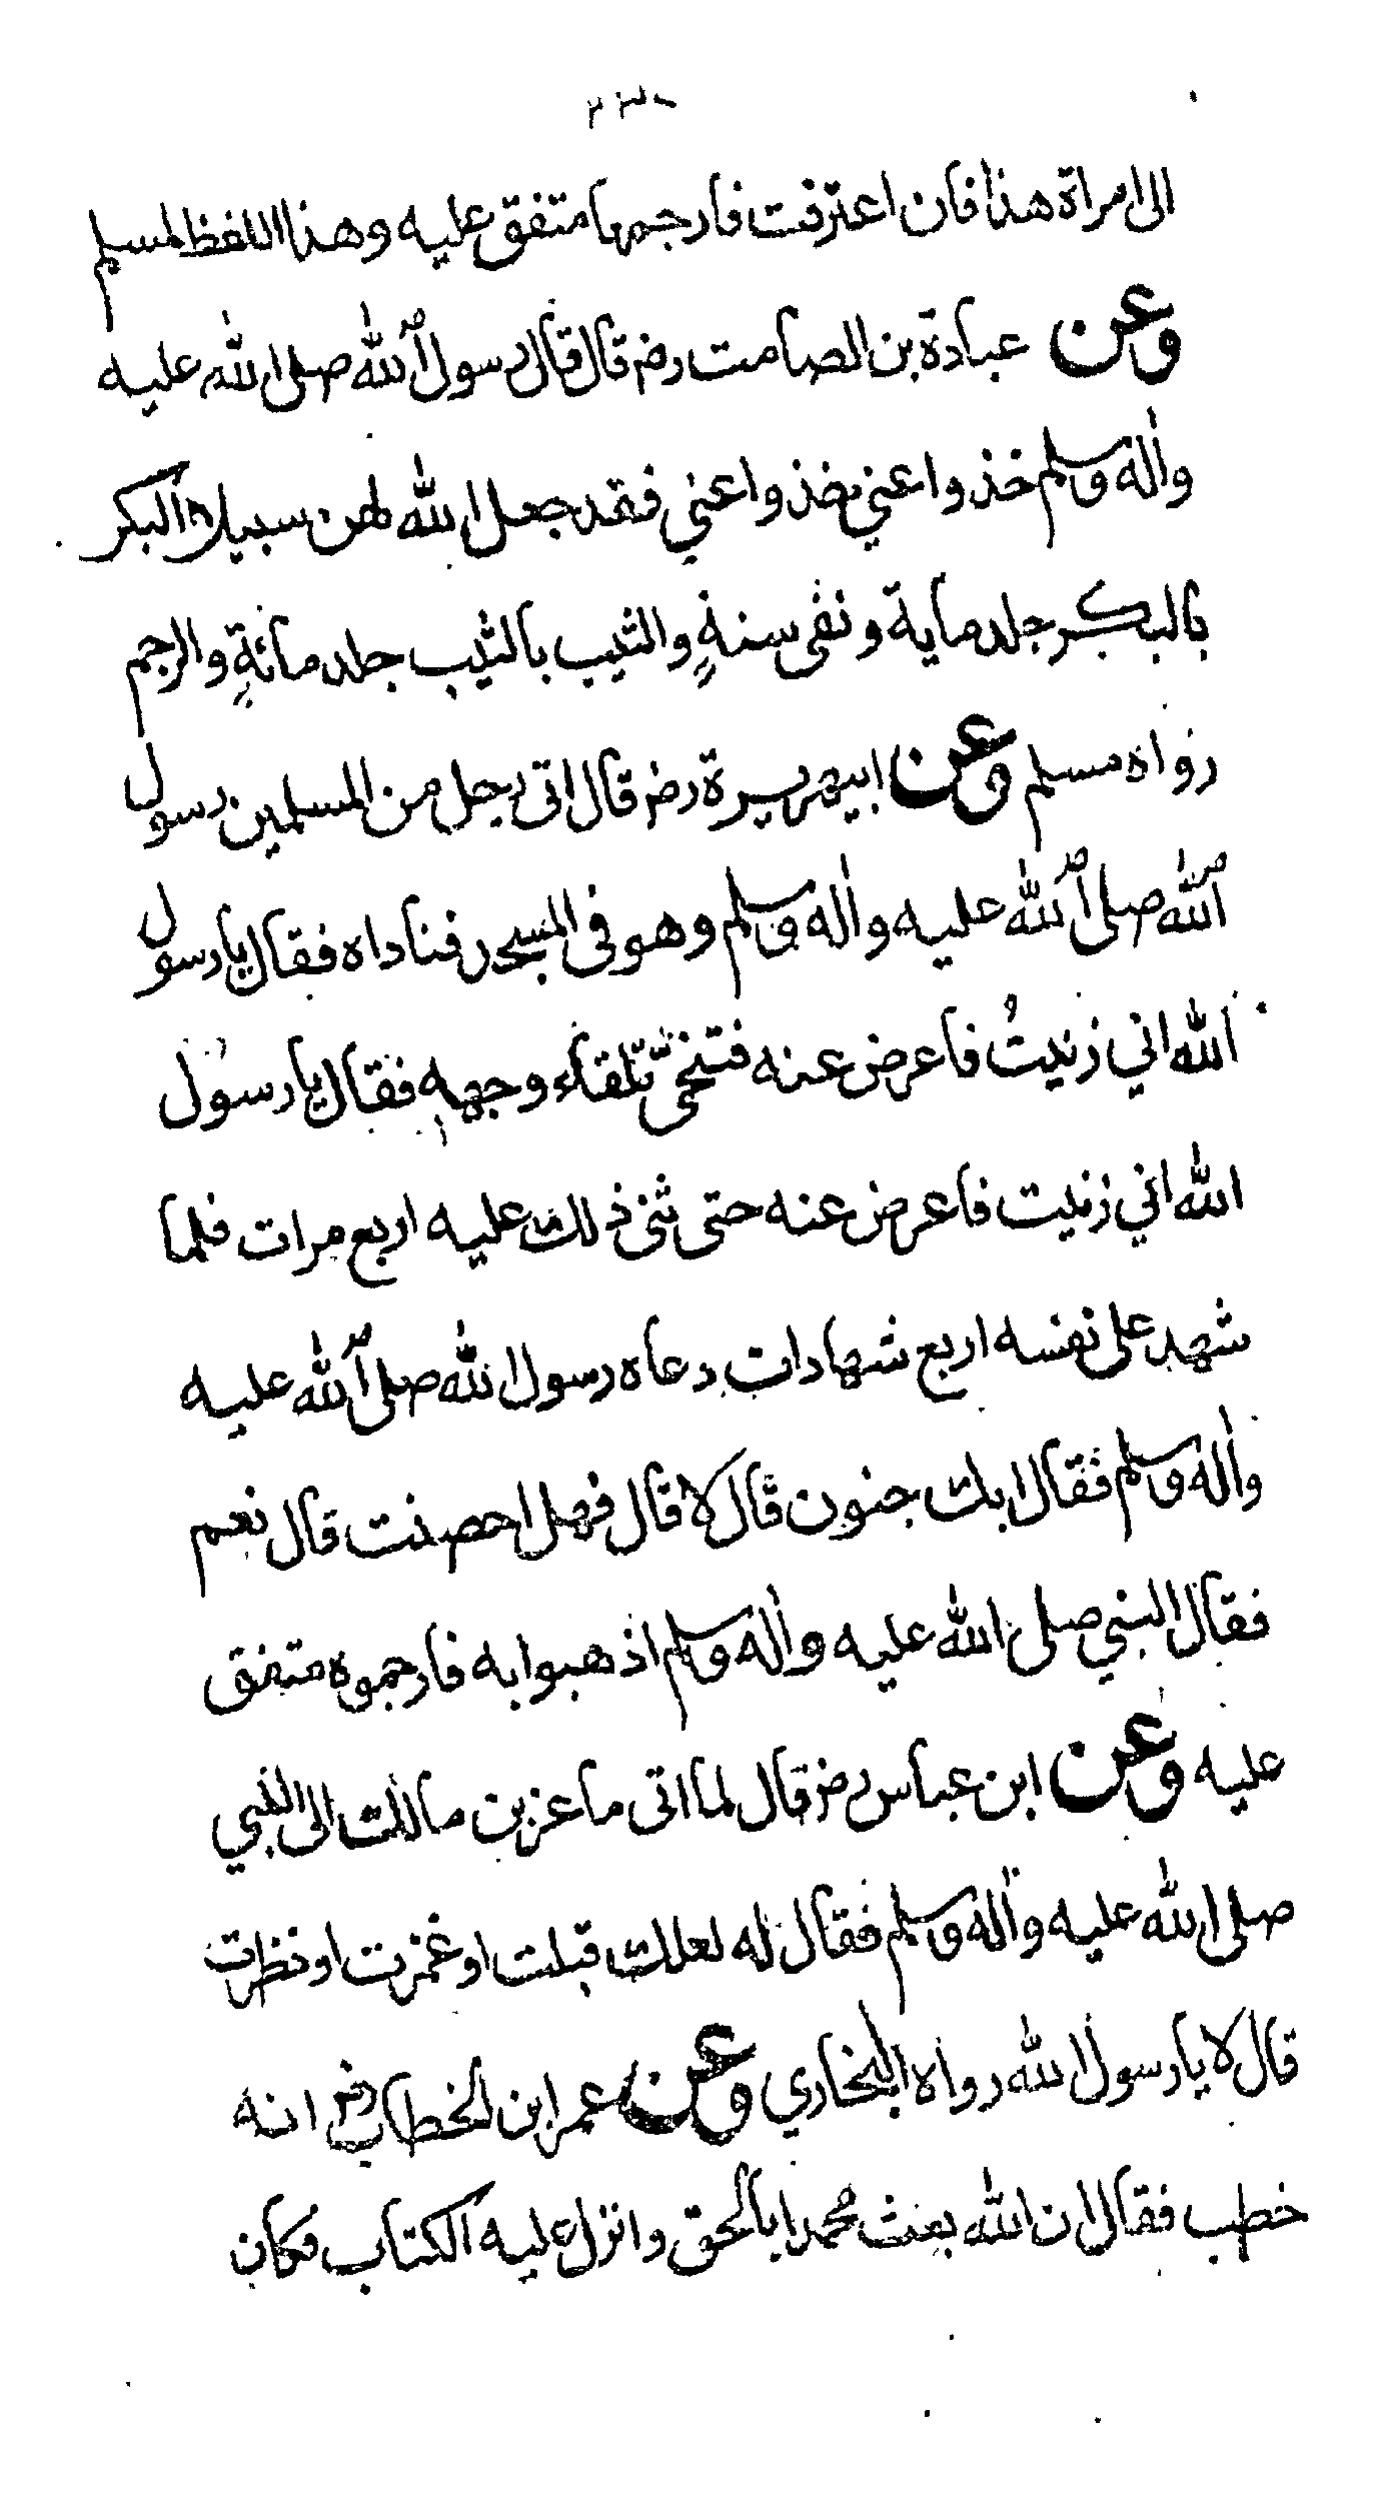 الى امراة هذا فان اعترفت فارجمها متفق عليه وهذا اللفظ لمسلم
وعن عبادة بن الصامت رض قال قال رسول الله صلى الله عليه
واله وسلم خذوا عني خذوا عني فقد جعل الله لهن سبيلا البكر
بالبكر جلد ماية ونفى سنةٍ والثيب بالثيب جلد مائةٍ والرجم
رواه مسلم وعن ابيهريرة رض قال اتى رجل من المسلمين رسول
الله صلى الله عليه واله وسلم وهو فى المسجد فناداه فقال يا رسول
الله اني زنيتُ فاعرض عنه فتنحّى تلقاء وجهه فقال يا رسول
الله اني زنيت فاعرض عنه حتى ثنى ذلك عليه اربع مرات فلما
شهد على نفسه اربع شهادات دعاه رسول الله صلى الله عليه
واله وسلم فقال ابك جنون قال لا قال فهل احصنت قال نعم
فقال النبي صلى الله عليه واله وسلم اذهبوا به فارجموه متفق
عليه وعن ابن عباس رض قال لما اتى ماعز بن مالك الى النبي
صلى الله عليه واله وسلم فقال له لعلك قبلت او غمزت او نظرت
قال لا يا رسول الله رواه البخاري وعن عمر ابن الخطاب رض انه
خطب فقال ان الله بعث محمدا بالحق وانزل عليه الكتاب فكان